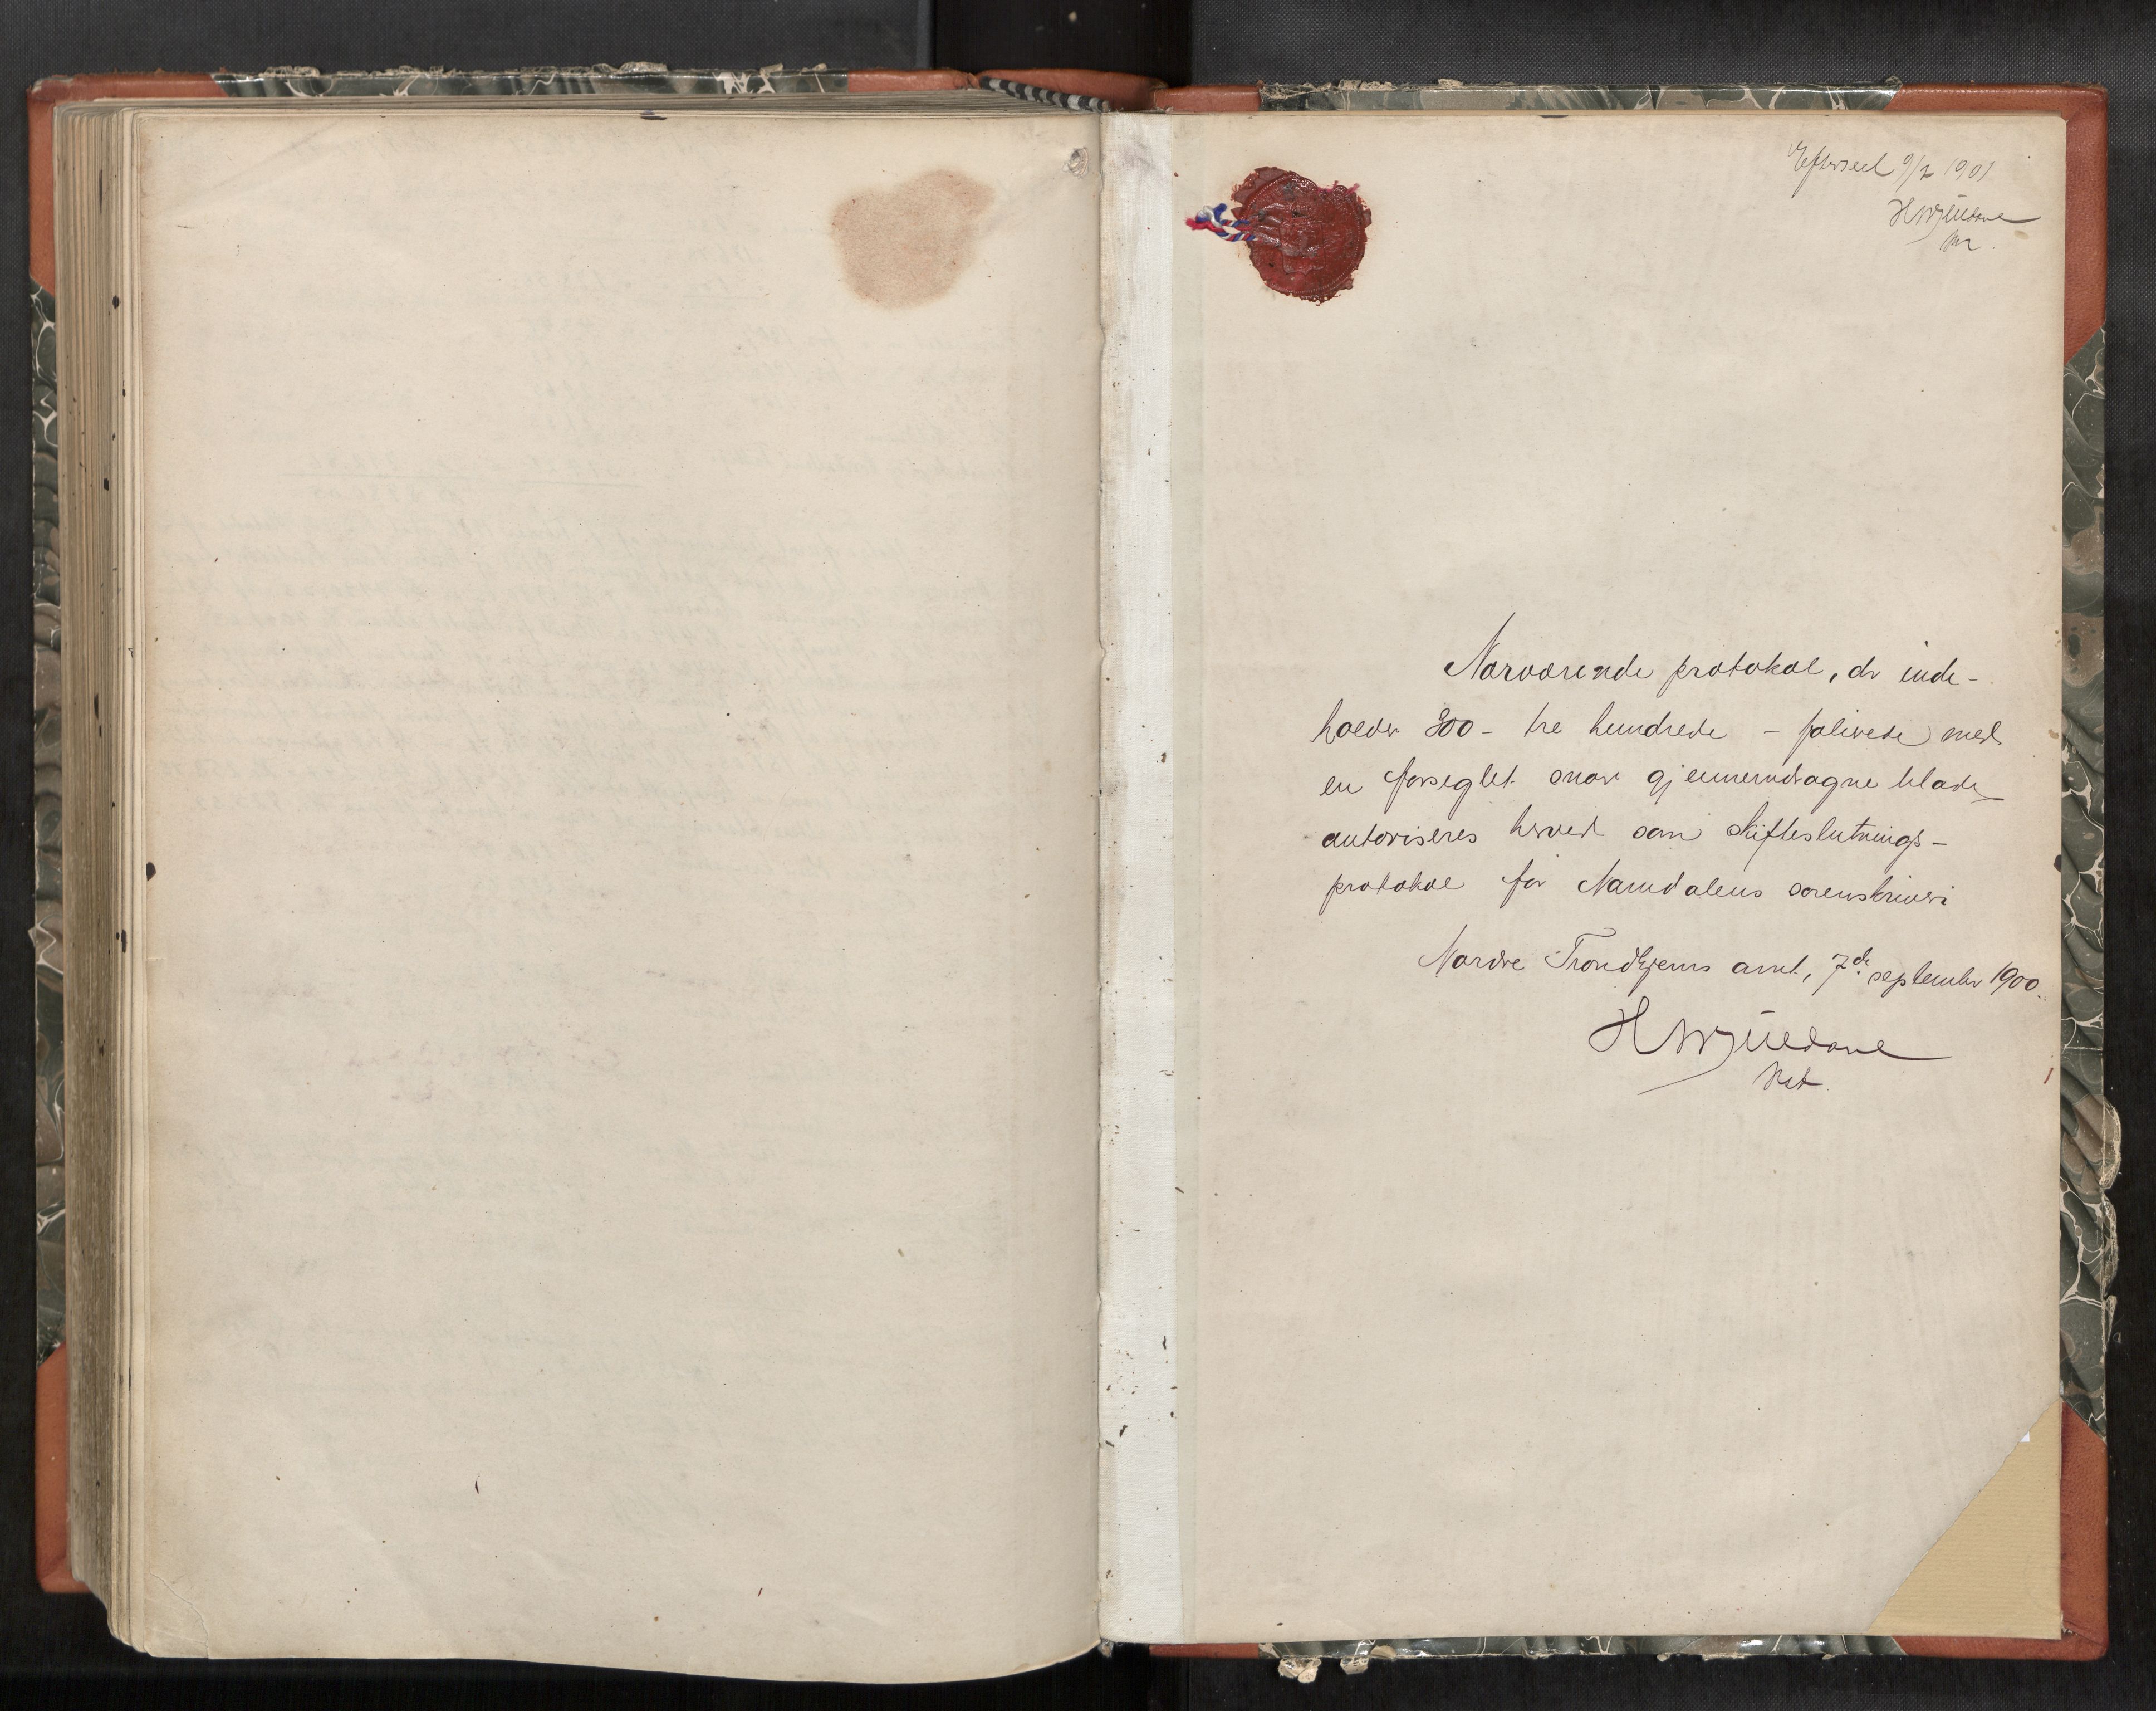 Efterseet 9/2 1901
Nærværende protokol, der inde-
holder 300 - tre hundrede - folierede med
en forseglet snor gjennemdragne blade
autoriseres herved som skifteslutnings-
protokol for Namdalens sorenskriveri
Nordre Trondhjems amt, 7de september 1900.